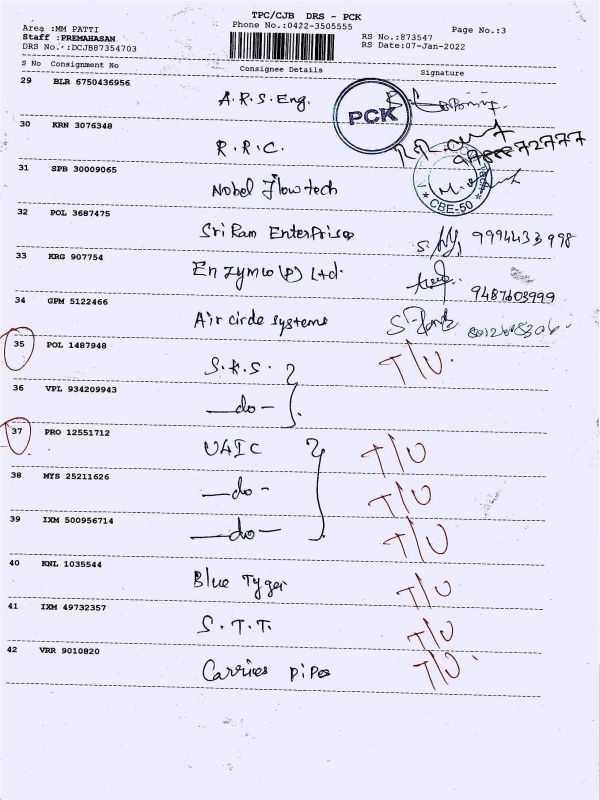 TPC/CJB DRS - PCK
Area :MM PATTI Phone No.:0422-3505555 Page No.:3
Staff :PREMAHASAN RS No.:873547
DRS No.:DCJB87354703 RS Date:07-Jan-2022
S No Consignment No Consignee Details Signature
29 BLR 6750436956 A.R.S.Eng.
PCK
30 KRN 3076348 R.R.C.
31 SPB 30009065 Nobel Flowtech
CBE-50
32 POL 3687475 Sri Ram Enterprises 9994433998
33 KRG 907754 Enzymco (P) Ltd. 9487603999
34 GPM 5122466 Air circle systems
35 POL 1487948 S.K.S. T/U.
36 VPL 934209943 —do—
37 PRO 12551712 UAIC T/U
38 MYS 25211626 —do- T/U
39 IXM 500956714 —do— T/U
40 KNL 1035544 Blue Tyger T/U
41 IXM 49732357 S.T.T. T/U
42 VRR 9010820 Carries pipes T/U.